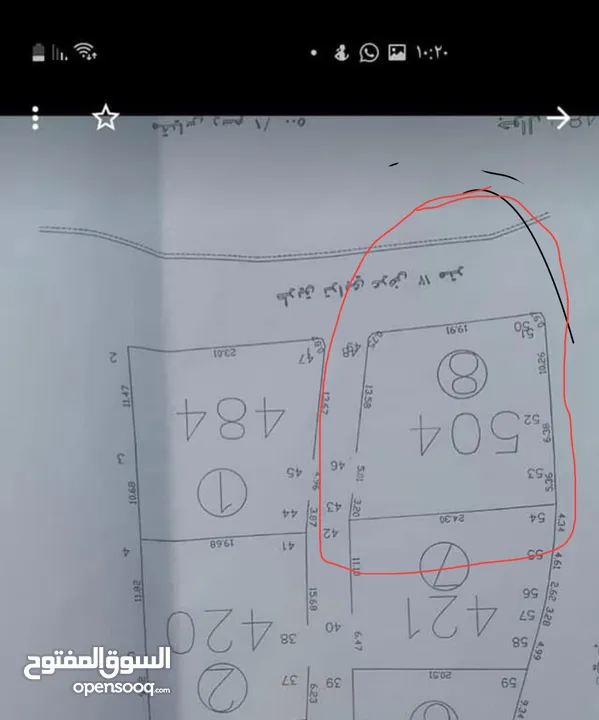 ١٠:٢٠
مقياس رسم ١ / ٥٠٠
طريق ترابي عرض متر
2 23.01 47 48 19.91 50 51
11.47 12.67 13.58 10.26
484 504 8
52 6.38
3 1 45 46 5.01 53 5.36
10.68 4.96
44 3.87 43 3.20 54 4.34
4 19.68 41 42 24.30
11.92 11.10 7 55 4.61
56 2.62
15.68 57 3.28
420 421
38 40 6.47 58 4.99
2 37 6.23 39 20.51 59 9.34
السوق المفتوح
opensooq.com